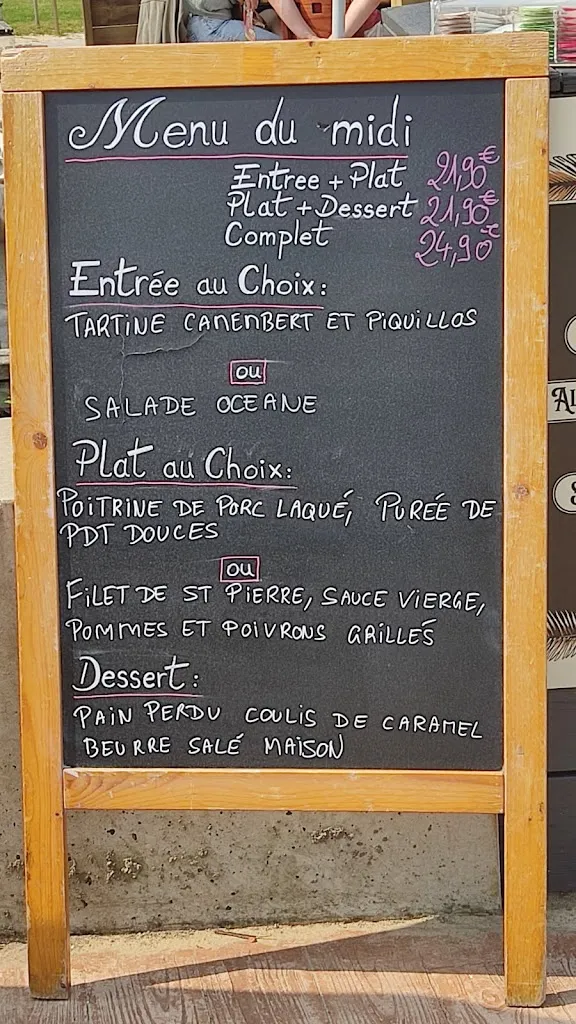 Menu du midi
Entree + Plat 21,90€
Plat + Dessert 21,90€
Complet 24,90€
Entrée au Choix:
TARTINE CAMENBERT ET PIQUILLOS
ou
SALADE OCEANE
Plat au Choix:
POITRINE DE PORC LAQUÉ, PURÉE DE
PDT DOUCES
ou
FILET DE ST PIERRE, SAUCE VIERGE,
POMMES ET POIVRONS GRILLÉS
Dessert:
PAIN PERDU COULIS DE CARAMEL
BEURRE SALÉ MAISON